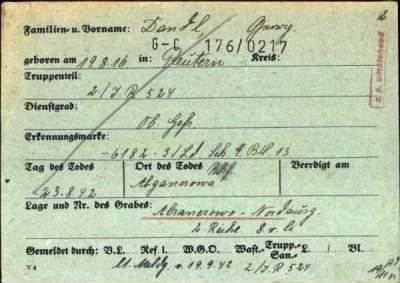 2
Familien- u. Vorname: Dandl, Georg
G-C 176/0217
geboren am 19.8.16 in: Kreis:
Truppenteil:
2./J.R. 524
Dienstgrad:
Ob. Gefr.
s. s. umstehend
Erkennungsmarke:
-6182-3/Ld. Sch. E. Btl. 13
Tag des Todes Ort des Todes Beerdigt am
23.8.42 Abganerowo
Lage und Nr. des Grabes: Abganerowo - Nordausg.
2. Reihe 8. v. li
Gemeldet durch: V.L. Ref I. W.G.O. Wast.- Trupp.- San.- L Bl.
lt. Meldg. v. 19.9.42 2./J.R. 524
V 4